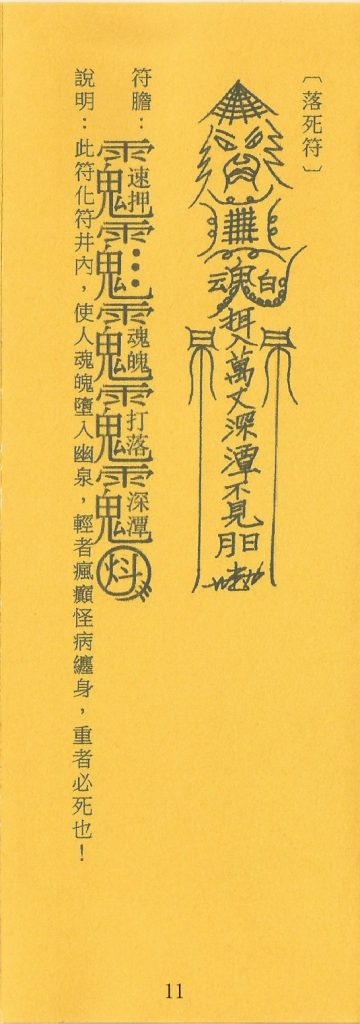 〔落死符〕
魂白
押入萬丈深潭不見
日月
符膽：
速押
魂魄
打落
深潭
說明：此符化符井內，使人魂魄墮入幽泉，輕者瘋癲怪病纏身，重者必死也！
11